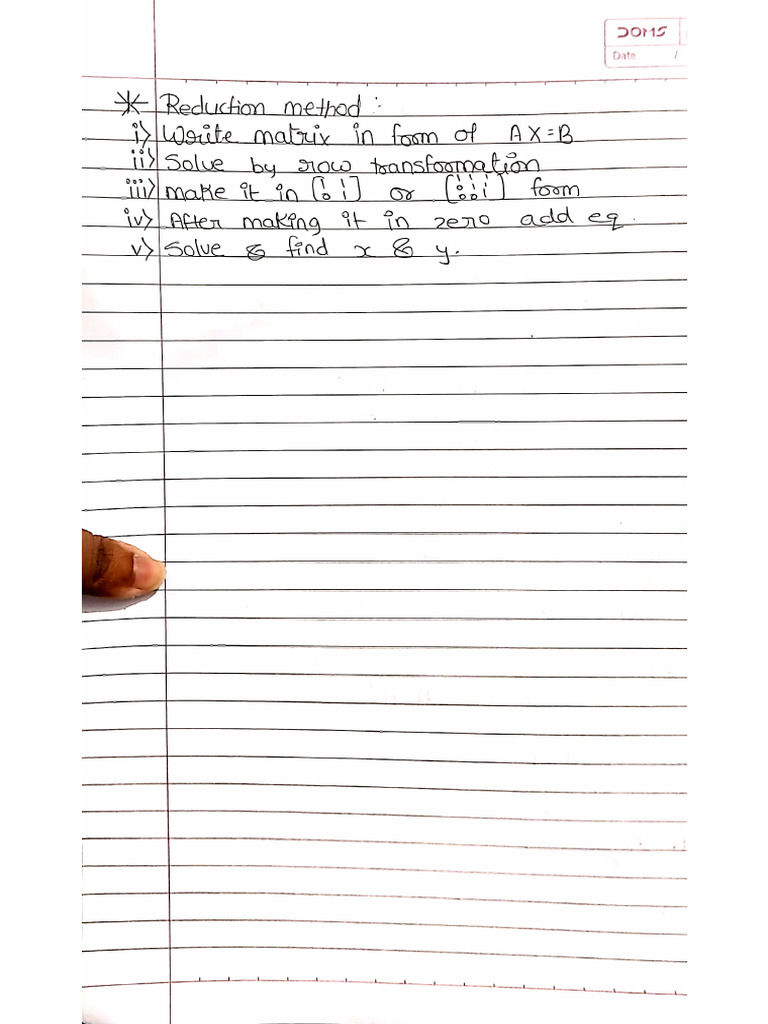 DOMS
Date /
* Reduction method :
i> Write matrix in form of AX=B
ii> Solve by row transformation
iii> make it in [1 1 0 1] or [1 1 1 0 1 1 0 0 1] form
iv> After making it in zero add eq.
v> Solve & find x & y.